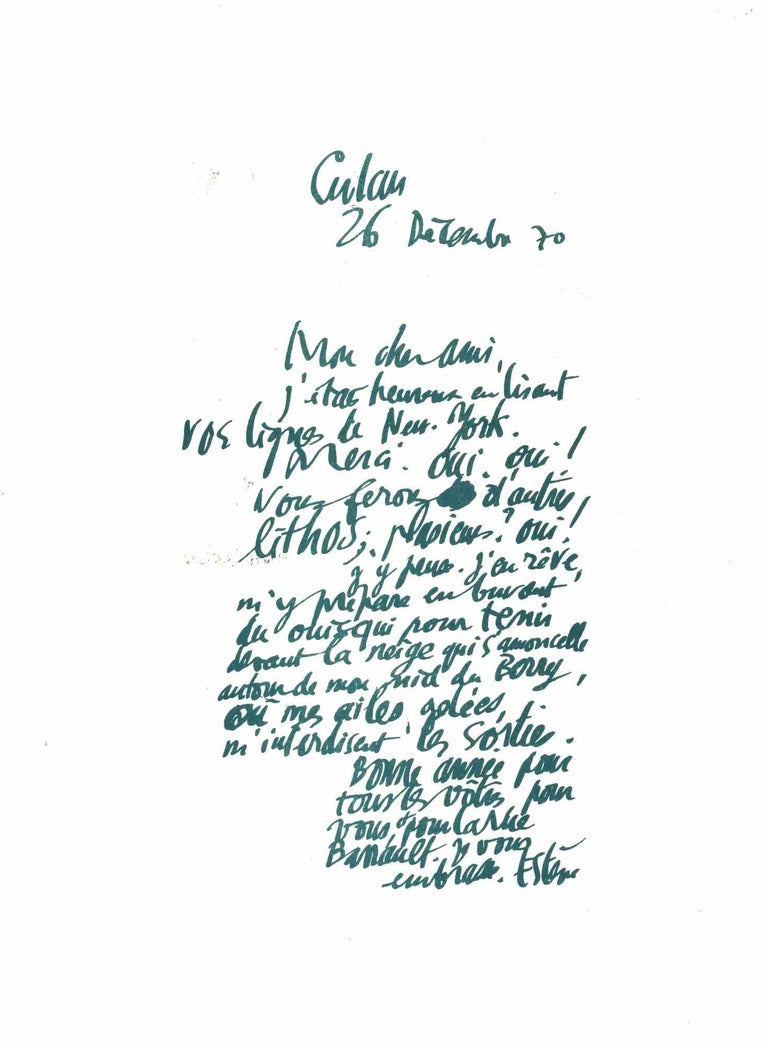 Culan
26 Décembre 70
Mon cher ami,
j'étais heureux en lisant
vos lignes de New-York.
Merci. oui. oui!
Nous ferons d'autres
lithos; plusieurs? oui!
j'y pense. j'en rêve,
m'y prépare en buvant
du ouisqui pour tenir
devant la neige qui s'amoncelle
autour de mon nid du Berry,
où mes ailes gelées,
m'interdisent les sorties.
Bonne année pour
tous les vôtres pour
vous & pour la rue
Barrault. je vous
embrasse. Estève